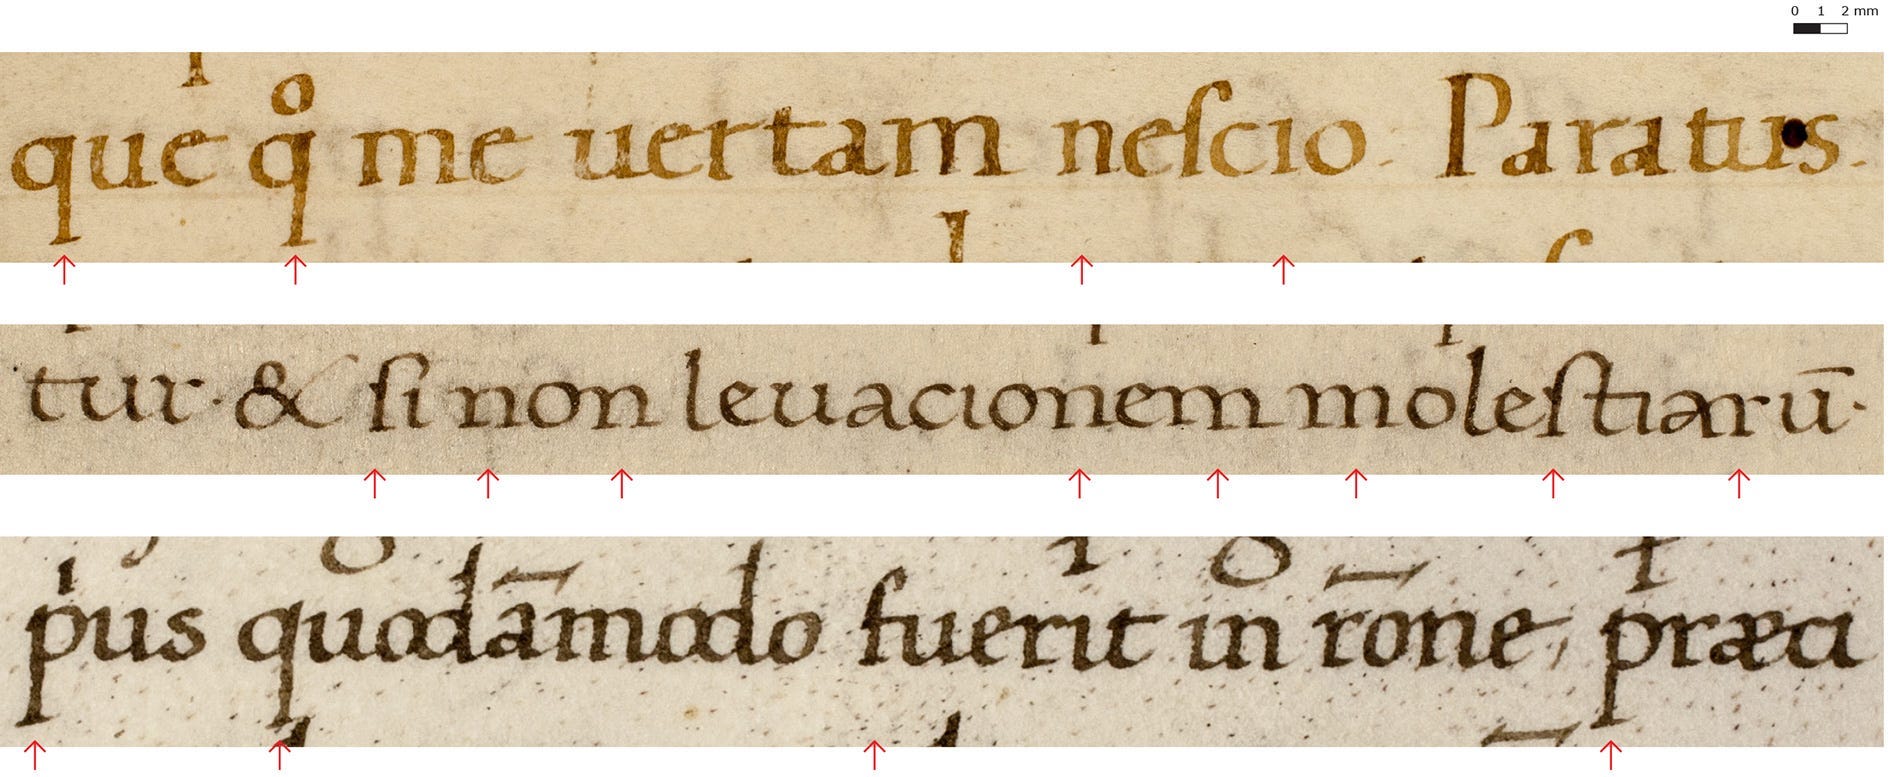 0 1 2 mm
que q̊ me uertam neſcio. Paratus.
tur. & ſi non leuacionem moleſtiarū.
p̍us quodāmodo fuerit in rōne, præci